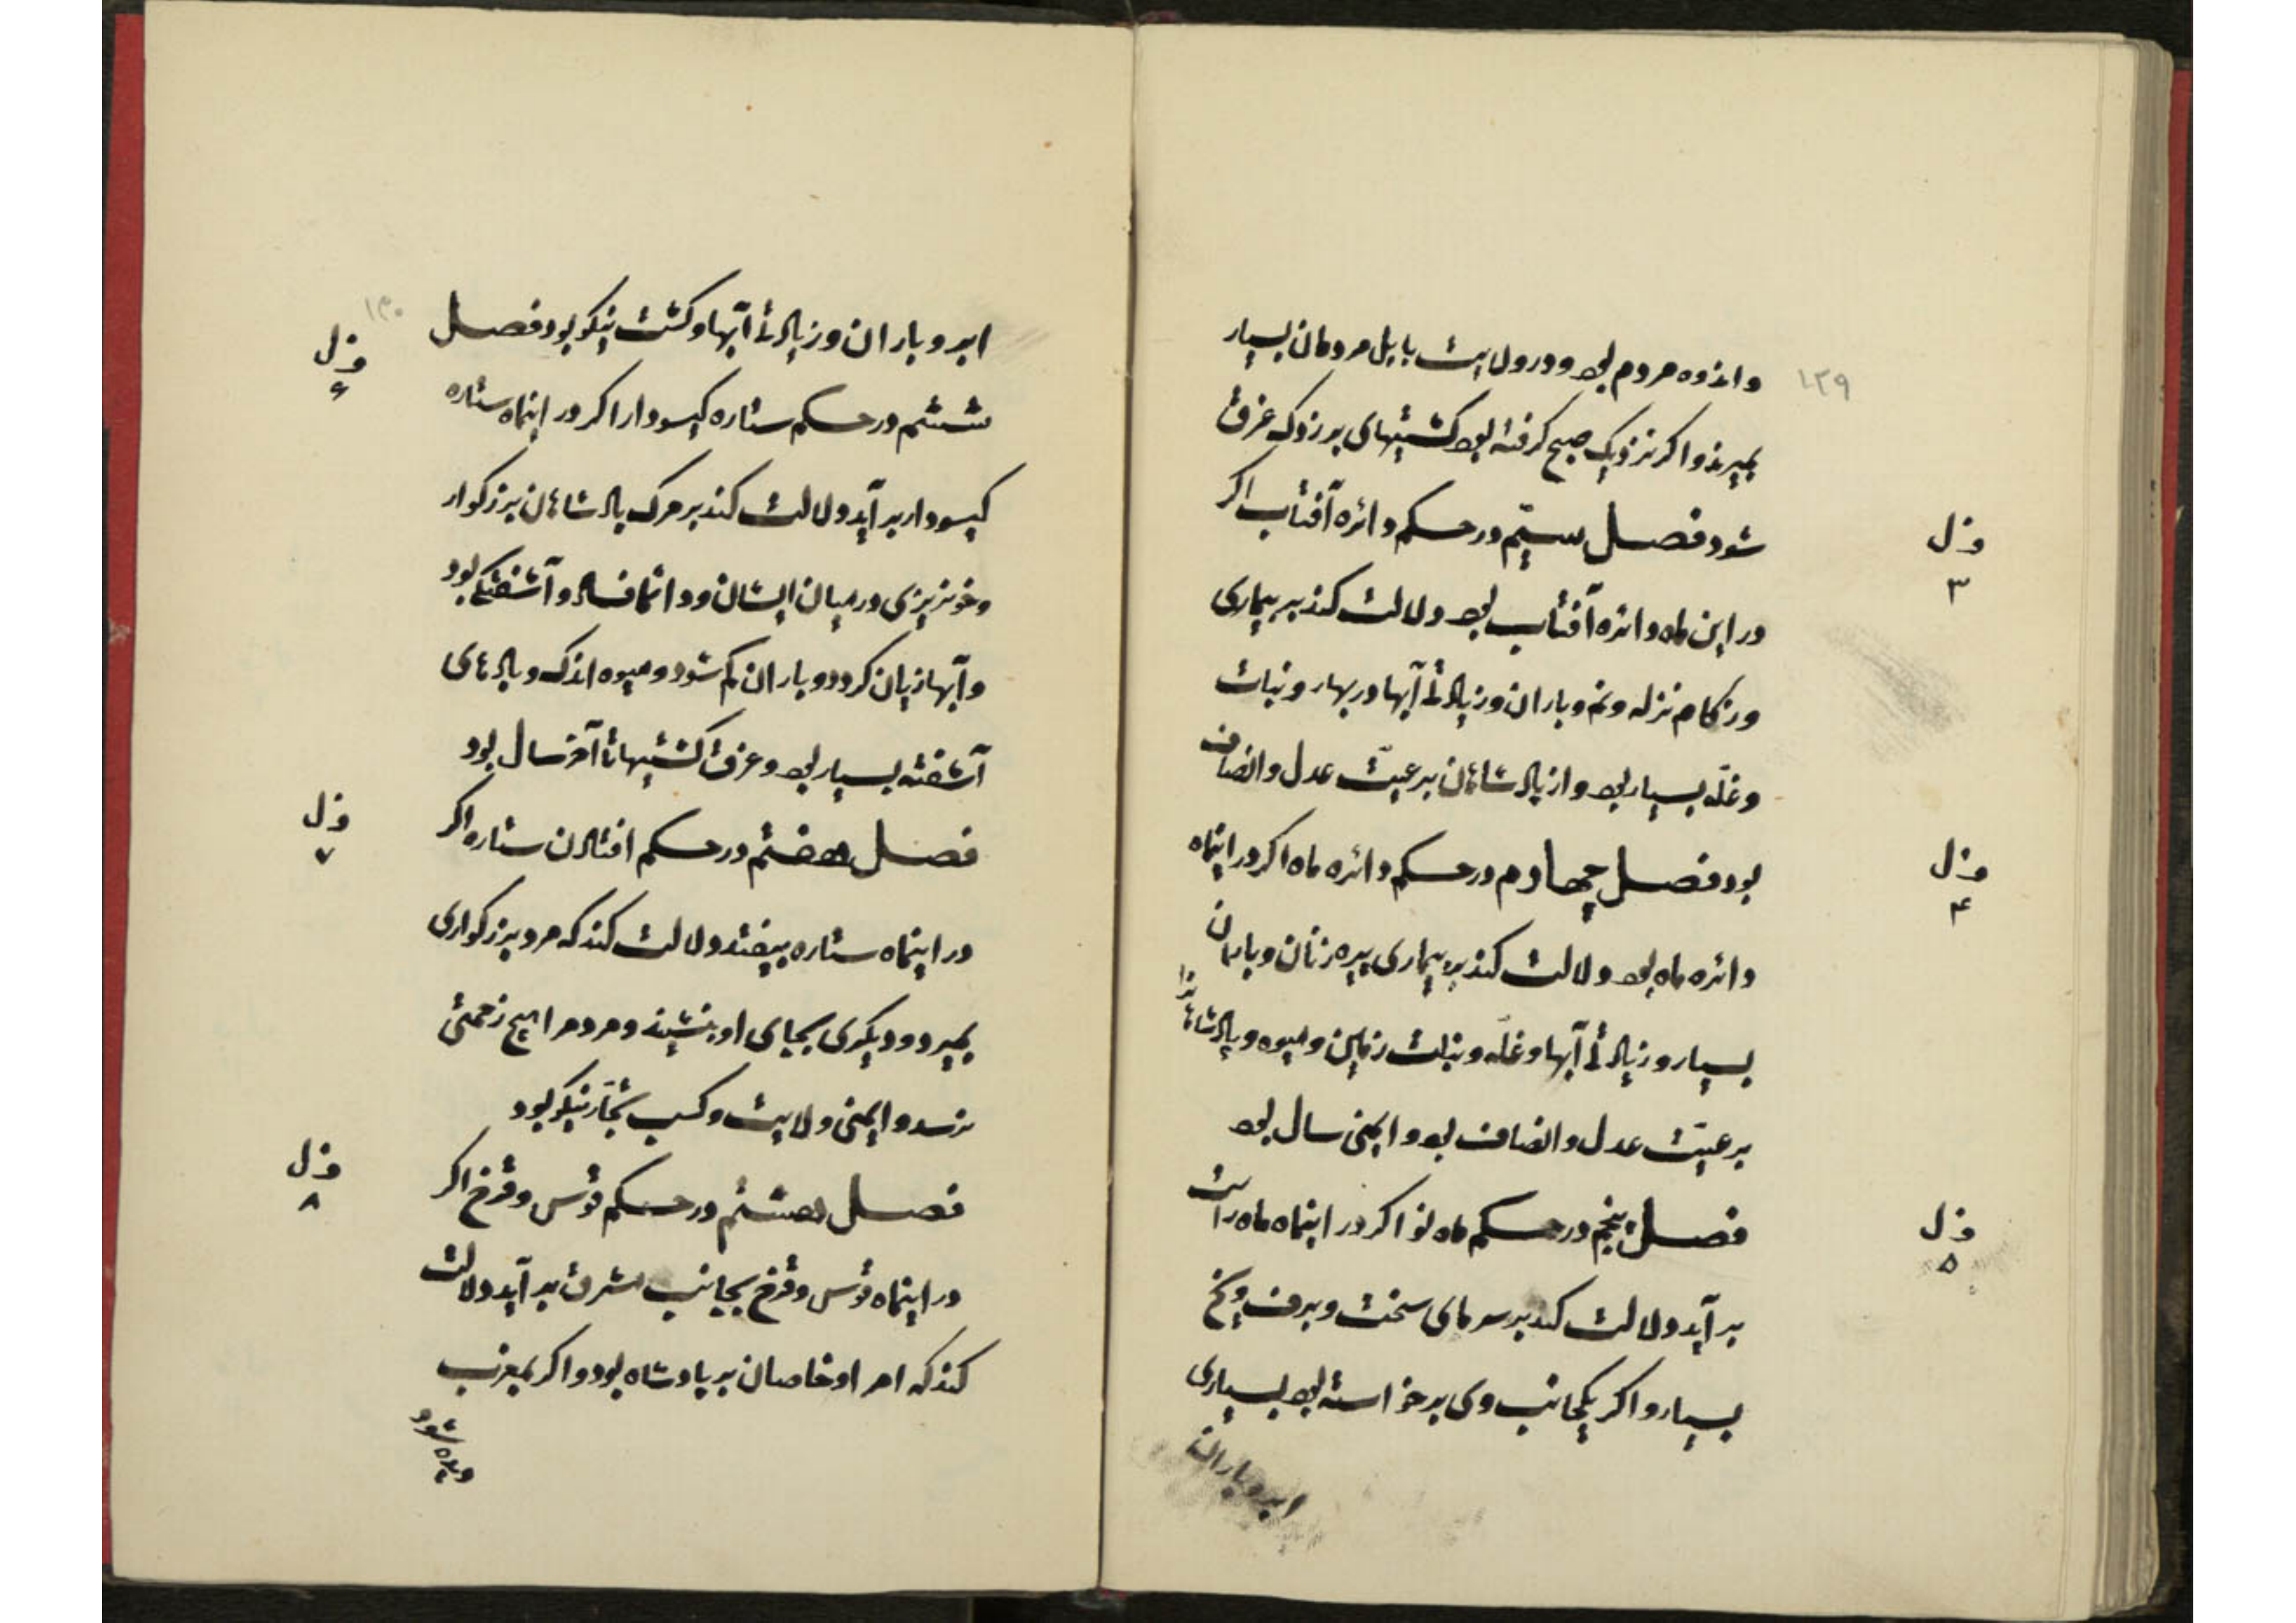 ۱۲۹
واندوه مردم بود و در ولایت بابل مردمان بسیار
بمیرند و اکر نزدیک صبح کرفته بود کشتیهای بزرک غرق
شود فصل سیّم در حکم دائره آفتاب اکر
فصل ۳
در این ماه دائره آفتاب بود دلالت کند بر بیماری
و زکام نزله و نم و باران و زیادتی آبها در بهار و نبات
و غلّه بسیار بود و از پادشاهان برعیّت عدل و انصاف
بود فصل چهارم در حکم دائره ماه اکر در اینماه
فصل ۴
دائره ماه بود دلالت کند بر بیماری پیره زنان و باران
بسیار و زیادتی آبها و غلّه و نبات زمین و میوه و پادشاهانرا
برعیّت عدل و انصاف بود و ایمنی سال بود
فصل پنجم در حکم ماه نو اکر در اینماه ماه راست
فصل ۵
بر آید دلالت کند بر سرمای سخت و برف و یخ
بسیار و اکر یکجانب وی برخواسته بود بسیاری
ابر و باران
۱۳۰
ابر و باران و زیادتی آبها و کشت نیکو بود فصل
فصل ۶
ششم در حکم ستاره کیسودار اکر در اینماه ستاره
کیسودار بر آید دلالت کند بر مرک پادشاهان بزرکوار
و خونریزی در میان ایشان و دائما فساد و آشفتکی بود
و آبها زیان کردد و باران کم شود و میوه اندک و بادهای
آشفته بسیار بود و غرق کشتیها تا آخر سال بود
فصل هفتم در حکم افتادن ستاره اکر
فصل ۷
در اینماه ستاره بیفتد دلالت کند که مرد بزرکواری
بمیرد و دیکری بجای او بنشیند و مردم را هیچ زحمتی
نرسد و ایمنی ولایت و کسب تجّار نیکو بود
فصل هشتم در حکم قوس و قزح اکر
فصل ۸
در اینماه قوس و قزح بجانب مشرق بر آید دلالت
کند که امر او خاصان بر پادشاه بود و اکر بمغرب
شود